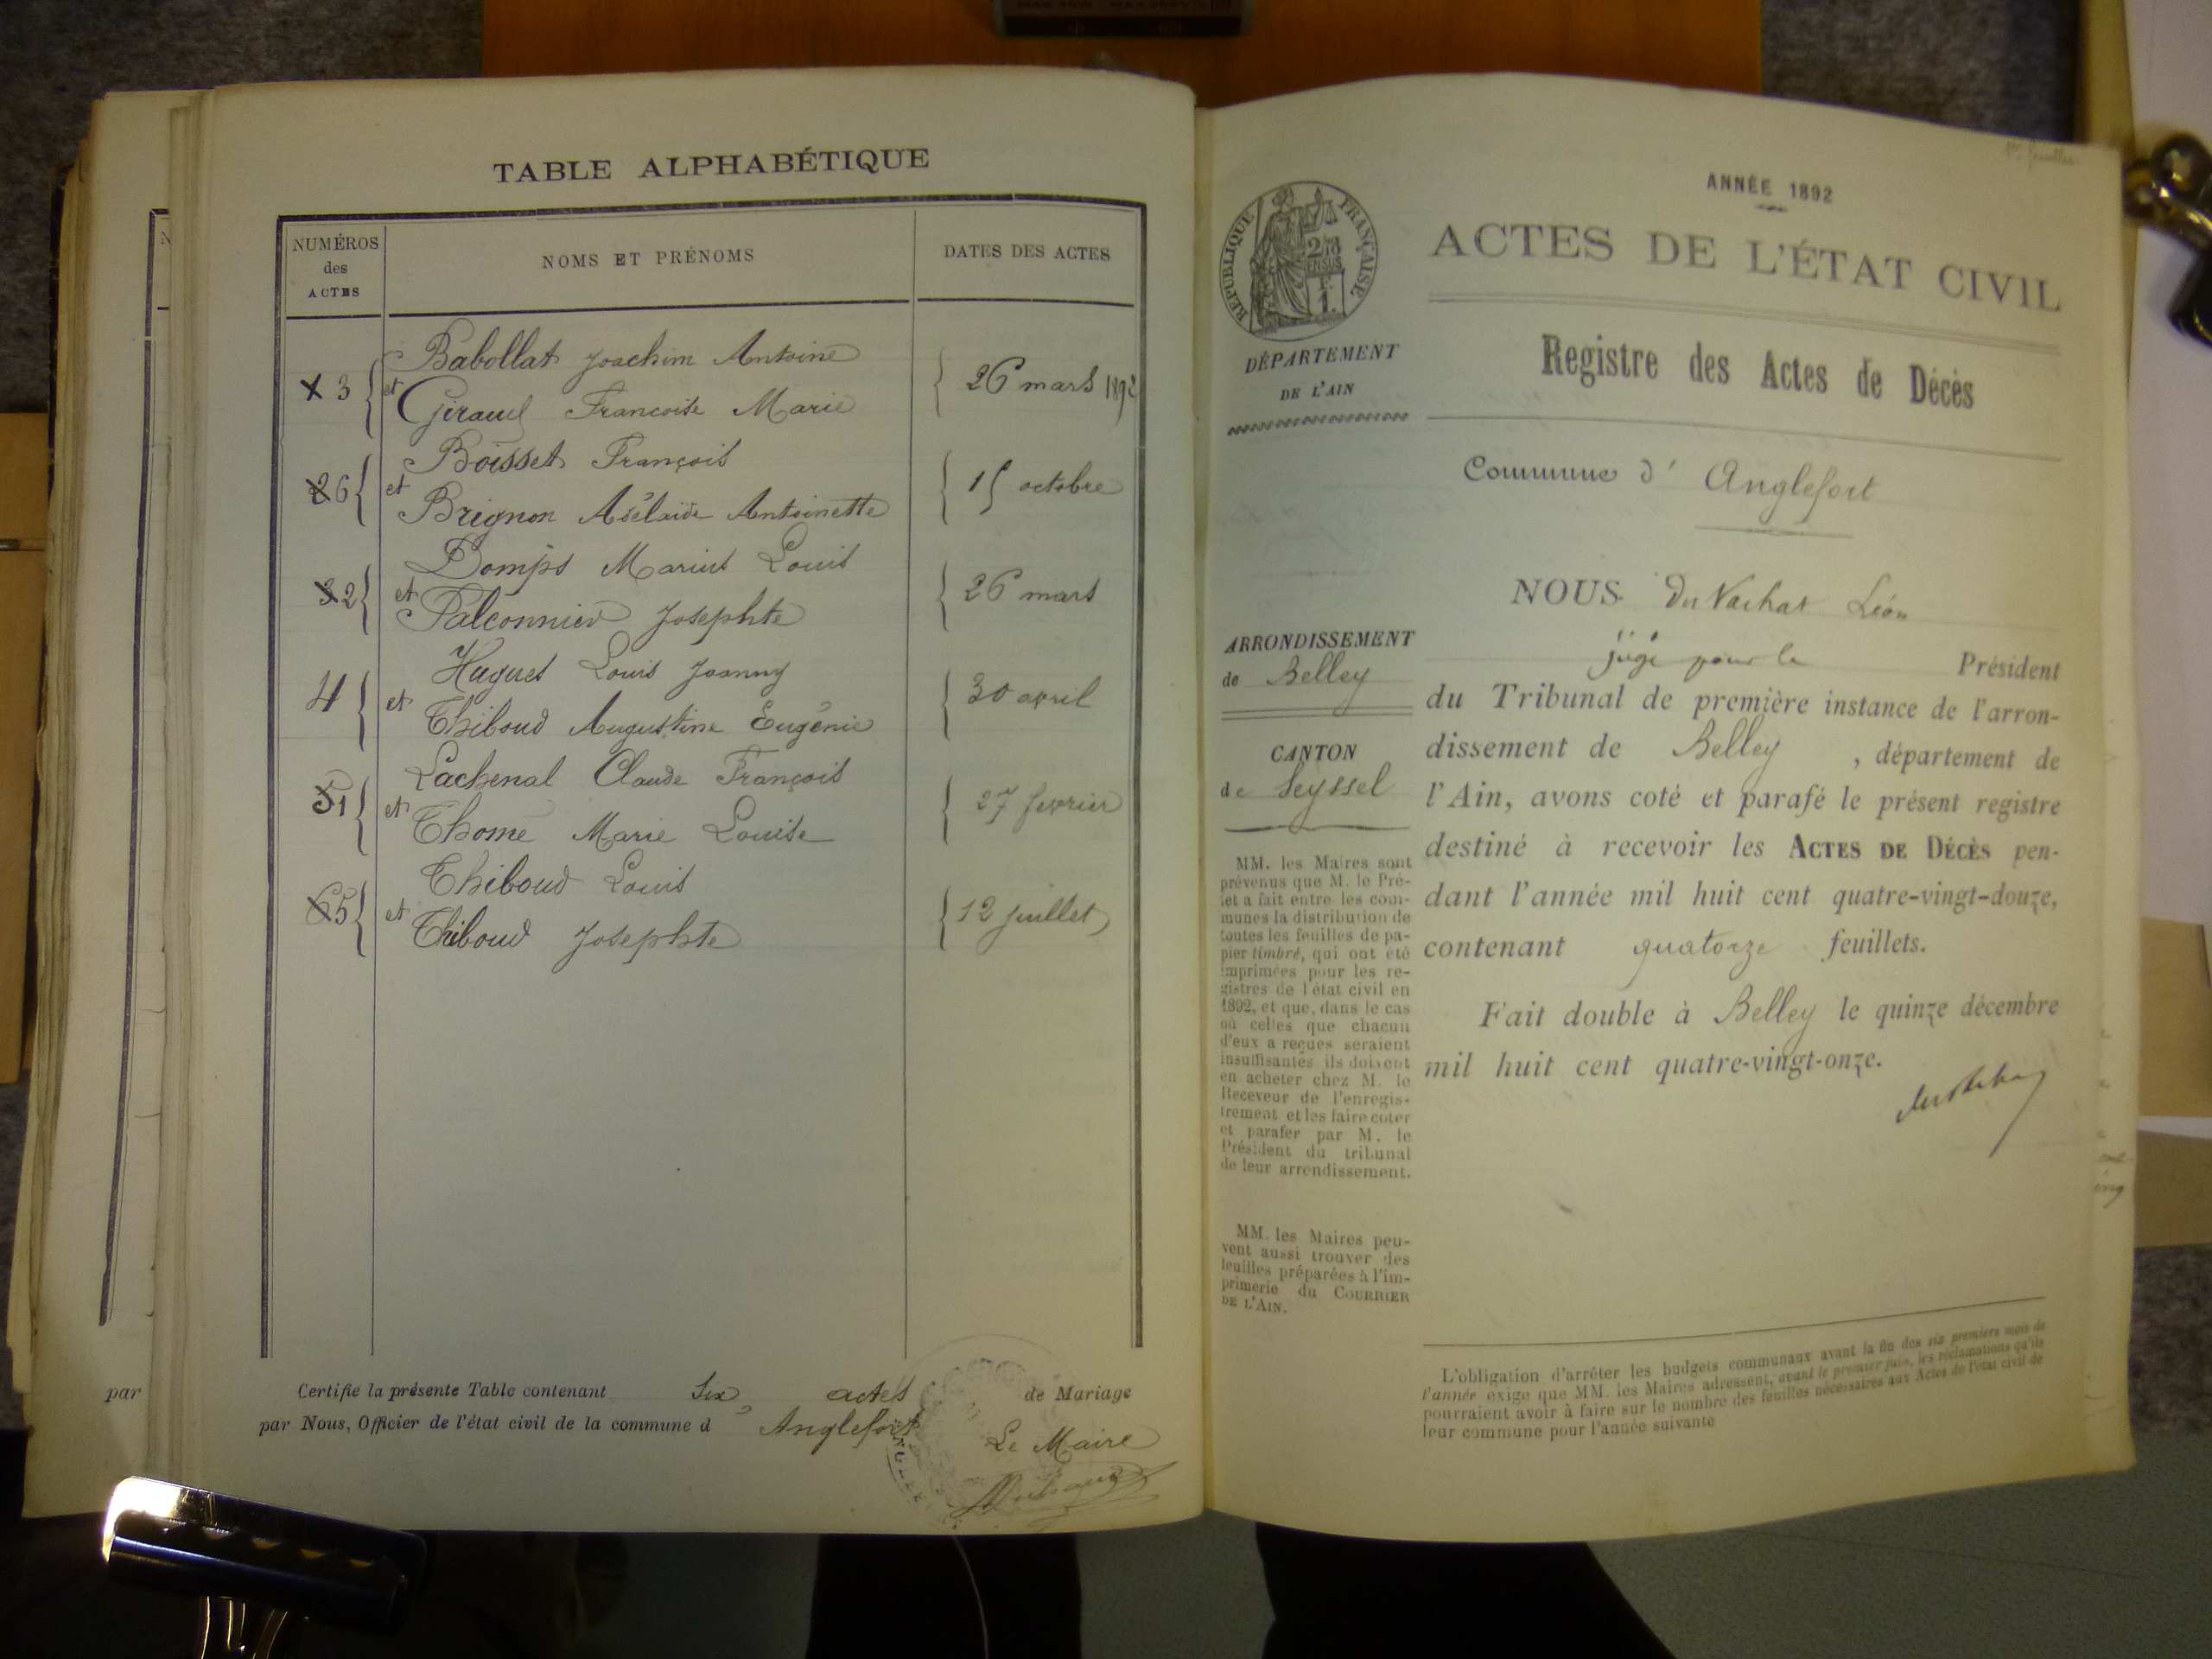 TABLE ALPHABÉTIQUE
NUMÉROS
des
ACTES
NOMS ET PRÉNOMS
DATES DES ACTES
3 { Babollat Joachim Antoine
et Giraud Francoise Marie } 26 mars 1892
6 { Boisset François
et Brignon Adélaïde Antoinette } 15 octobre
2 { Domps Marius Louis
et Falconnier Josephte } 26 mars
4 { Huguet Louis Joanny
et Thiboud Augustine Eugénie } 30 avril
1 { Lachenal Claude François
et Thomé Marie Louise } 27 fevrier
5 { Thiboud Louis
et Thiboud Josephte } 12 juillet
Certifie la présente Table contenant six actes de Mariage
par Nous, Officier de l'état civil de la commune d Anglefort
Le Maire
par
ANNÉE 1892
RÉPUBLIQUE FRANÇAISE
ACTES DE L'ÉTAT CIVIL
Registre des Actes de Décès
DÉPARTEMENT
DE L'AIN
Commune d' Anglefort
ARRONDISSEMENT
de Belley
CANTON
de Seyssel
MM. les Maires sont
prévenus que M. le Pré-
fet a fait entre les com-
munes la distribution de
toutes les feuilles de pa-
pier timbré, qui ont été
imprimées pour les re-
gistres de l'état civil en
1892, et que, dans le cas
où celles que chacun
d'eux a reçues seraient
insuffisantes ils doivent
en acheter chez M. le
Receveur de l'enregis-
trement et les faire coter
et parafer par M. le
Président du tribunal
de leur arrondissement.
MM. les Maires peu-
vent aussi trouver des
feuilles préparées à l'im-
primerie du COURRIER
DE L'AIN.
NOUS Du Vachat Léon
juge pour le Président
du Tribunal de première instance de l'arron-
dissement de Belley , département de
l'Ain, avons coté et parafé le présent registre
destiné à recevoir les ACTES DE DÉCÈS pen-
dant l'année mil huit cent quatre-vingt-douze,
contenant quatorze feuillets.
Fait double à Belley le quinze décembre
mil huit cent quatre-vingt-onze.
L'obligation d'arrêter les budgets communaux avant la fin des six premiers mois de
l'année exige que MM. les Maires adressent, avant le premier juin, les réclamations qu'ils
pourraient avoir à faire sur le nombre des feuilles nécessaires aux Actes de l'état civil de
leur commune pour l'année suivante